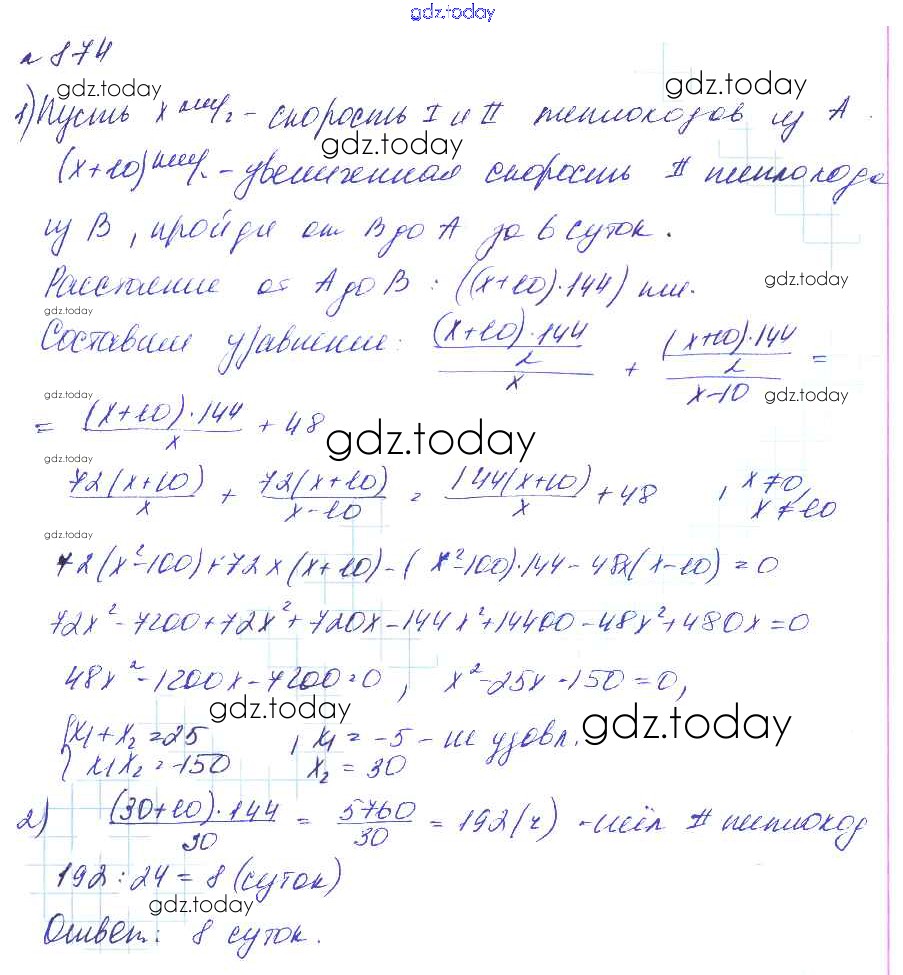 gdz.today
№ 874
gdz.today gdz.today
1) Пусть x км/ч - скорость I и II теплоходов из A.
gdz.today
(x+10) км/ч - увеличенная скорость II теплохода
из B, пройде от B до A за 6 суток.
Расстояние от A до B : ((x+10)·144) км. gdz.today
gdz.today
Составим уравнение: ((x+10)·144/2)/x + ((x+10)·144/2)/(x-10) =
gdz.today gdz.today
= (x+10)·144/x + 48
gdz.today
gdz.today
72(x+10)/x + 72(x+10)/(x-10) = 144(x+10)/x + 48 , x≠0,
x≠10
gdz.today
72(x²-100)+72x(x+10)-(x²-100)·144-48x(x-10)=0
72x²-7200+72x²+720x-144x²+14400-48x²+480x=0
48x²-1200x-7200=0, x²-25x-150=0,
gdz.today gdz.today
{x₁+x₂=25 , x₁=-5 - не удовл.
{x₁x₂=-150 x₂=30
2) (30+10)·144/30 = 5760/30 = 192(ч) -шёл II теплоход
192:24=8 (суток)
gdz.today gdz.today
Ответ: 8 суток.